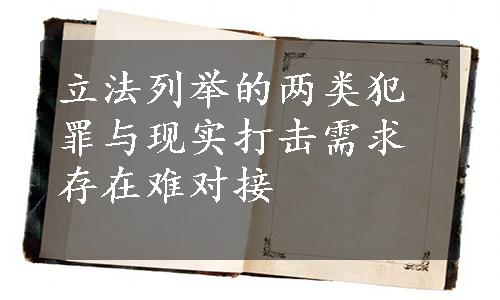 立法列举的两类犯
罪与现实打击需求
存在难对接